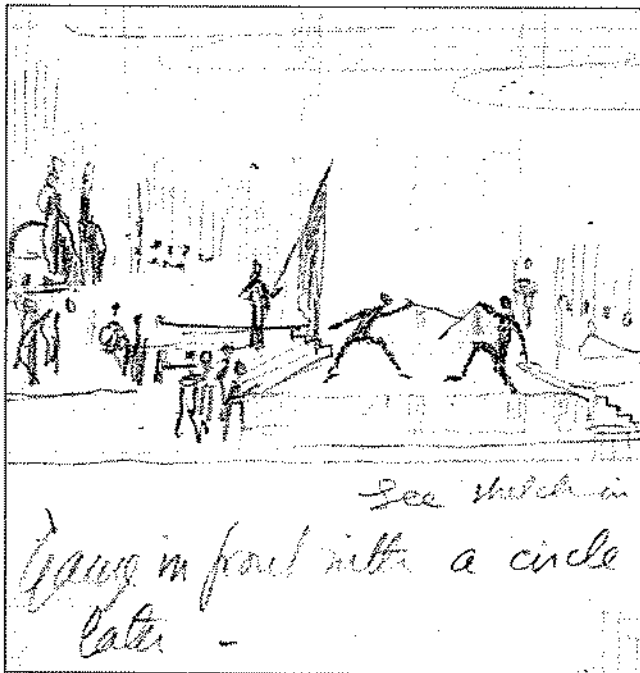 See sketch in
Gauze in front with a circle
later -